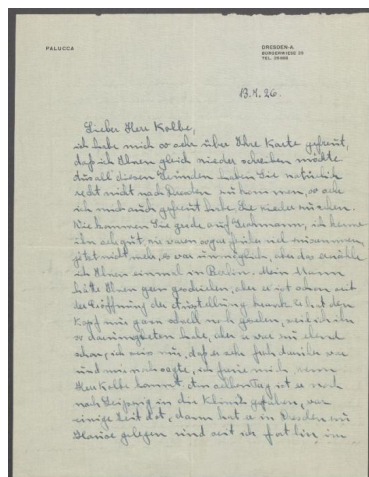 PALUCCA
DRESDEN-A.
BÜRGERWIESE 25
TEL. 
26.
Lieber Herr Kolbe,
ich habe mich so sehr über Ihre Karte gefreut,
daß ich Ihnen gleich wieder schreiben möchte
aus all diesen Gründen haben Sie natürlich
recht nicht nach Dresden zu kommen, so sehr
ich mich auch gefreut hätte Sie wieder zu sehen.
Wie kommen Sie grade auf Grohmann, ich kenne
ihn sehr gut, wir waren sogar früher viel zusammen,
jetzt nicht mehr, es war unmöglich, aber das erzähle
ich Ihnen einmal in Berlin. Mein Mann
hätte Ihnen gern geschrieben, aber er ist schon seit
der Eröffnung der Ausstellung krank
Kopf nur ganz schnell noch
so habe, aber es war zu elend
schon, ich weiß nur, daß er sehr froh darüber war
und mir noch sagte, ich freue mich, wenn
Herr Kolbe kommt. Am selben Tag ist er noch
nach Leipzig in die Klinik gefahren, war
einige Zeit dort, dann hat er in Dresden zu
Hause gelegen und seit ich fort bin, im